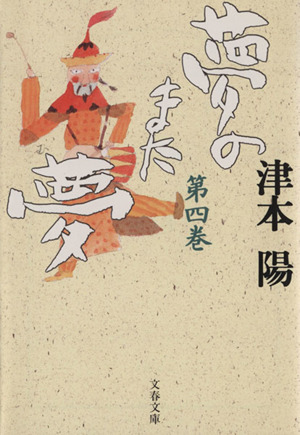 夢の
また
夢
第四巻
津本 陽
文春文庫